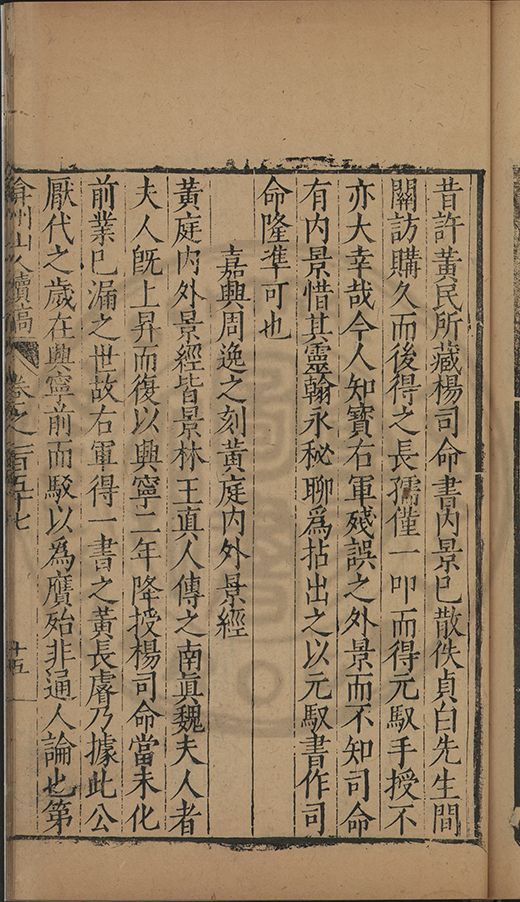 昔許黃民所藏楊司命書内景已散佚貞白先生間
關訪購久而後得之長孺僅一叩而得元馭手授不
亦大幸哉今人知寶右軍殘誤之外景而不知司命
有内景惜其靈翰永秘聊為拈出之以元馭書作司
命隆準可也
嘉興周逸之刻黃庭内外景經
黃庭内外景經皆景林王真人傳之南真魏夫人者
夫人旣上昇而復以興寧二年降授楊司命當未化
前業已漏之世故右軍得一書之黃長睿乃據此公
厭代之歲在興寧前而駁以為贋殆非通人論也第
弇州山人續稿 卷之一百五十七 十五